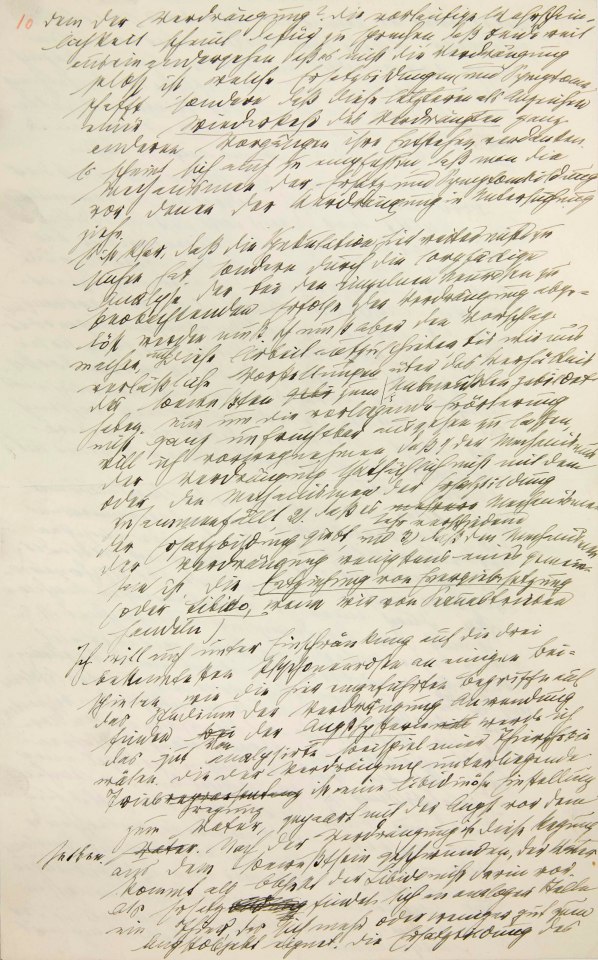 10 dem der Verdrängung? Die vorläufige Wahrschein-
lichkeit scheint dafür zu sprechen daß beide weit
auseinandergehen daß es nicht die Verdrängung
selbst ist welche Ersatzbildungen und Symptome
schafft sondern daß diese letzteren als Anzeichen
einer Wiederkehr des Verdrängten ganz
anderen Vorgängen ihre Entstehung verdanken.
Es scheint sich auch zu empfehlen daß man die
Mechanismen der Ersatz und Symptombildung
vor denen der Verdrängung in Untersuchung
ziehe.
Es ist klar, daß die Spekulation hier weiter nichts zu
suchen hat sondern durch die sorgfältige
Analyse der bei den einzelnen Neurosen zu
beobachtenden Erfolge der Verdrängung abge-
löst werden muß. Ich muß aber den Vorschlag
machen, auch diese Arbeit aufzuschieben bis wir uns
verläßliche Vorstellungen über das Verhältnis
des Bewußten zum Unbewußten gebildet
haben. Nur um die vorliegende Erörterung
nicht ganz unfruchtbar ausgehen zu lassen,
will ich vorwegnehmen, daß 1. der Mechanismus
der Verdrängung thatsächlich nicht mit dem
oder den Mechanismen der Ersatzbildung
zusammenfällt 2. daß es mehrere Mechanismen
sehr verschiedene
der Ersatzbildung giebt und 3) daß den Mechanismen
der Verdrängung wenigstens eines gemein-
sam ist die Entziehung von Energiebesetzung
(oder Libido, wenn wir von Sexualtrieben
handeln)
Ich will auch unter Einschränkung auf die drei
bekanntesten Psychoneurosen an einigen Bei-
spielen wie die hier eingeführten Begriffe auf
das Studium der Verdrängung Anwendung
finden. Von der Angsthysterie werde ich
das gut analysirte Beispiel einer Thierfobie
wählen. Die der Verdrängung unterliegende
Triebrepräsentanz ist eine libidinöse Einstellung
regung
zum Vater, gepaart mit der Angst vor dem
selben. Vater. Nach der Verdrängung ist diese Regung
aus dem Bewußtsein geschwunden, der Vater
kommt als Objekt der Libido nicht darin vor.
Als Ersatz findet sich an analoger Stelle
ein Thier das sich mehr oder weniger gut zum
Angstobjekt eignet. Die Ersatzbildung des